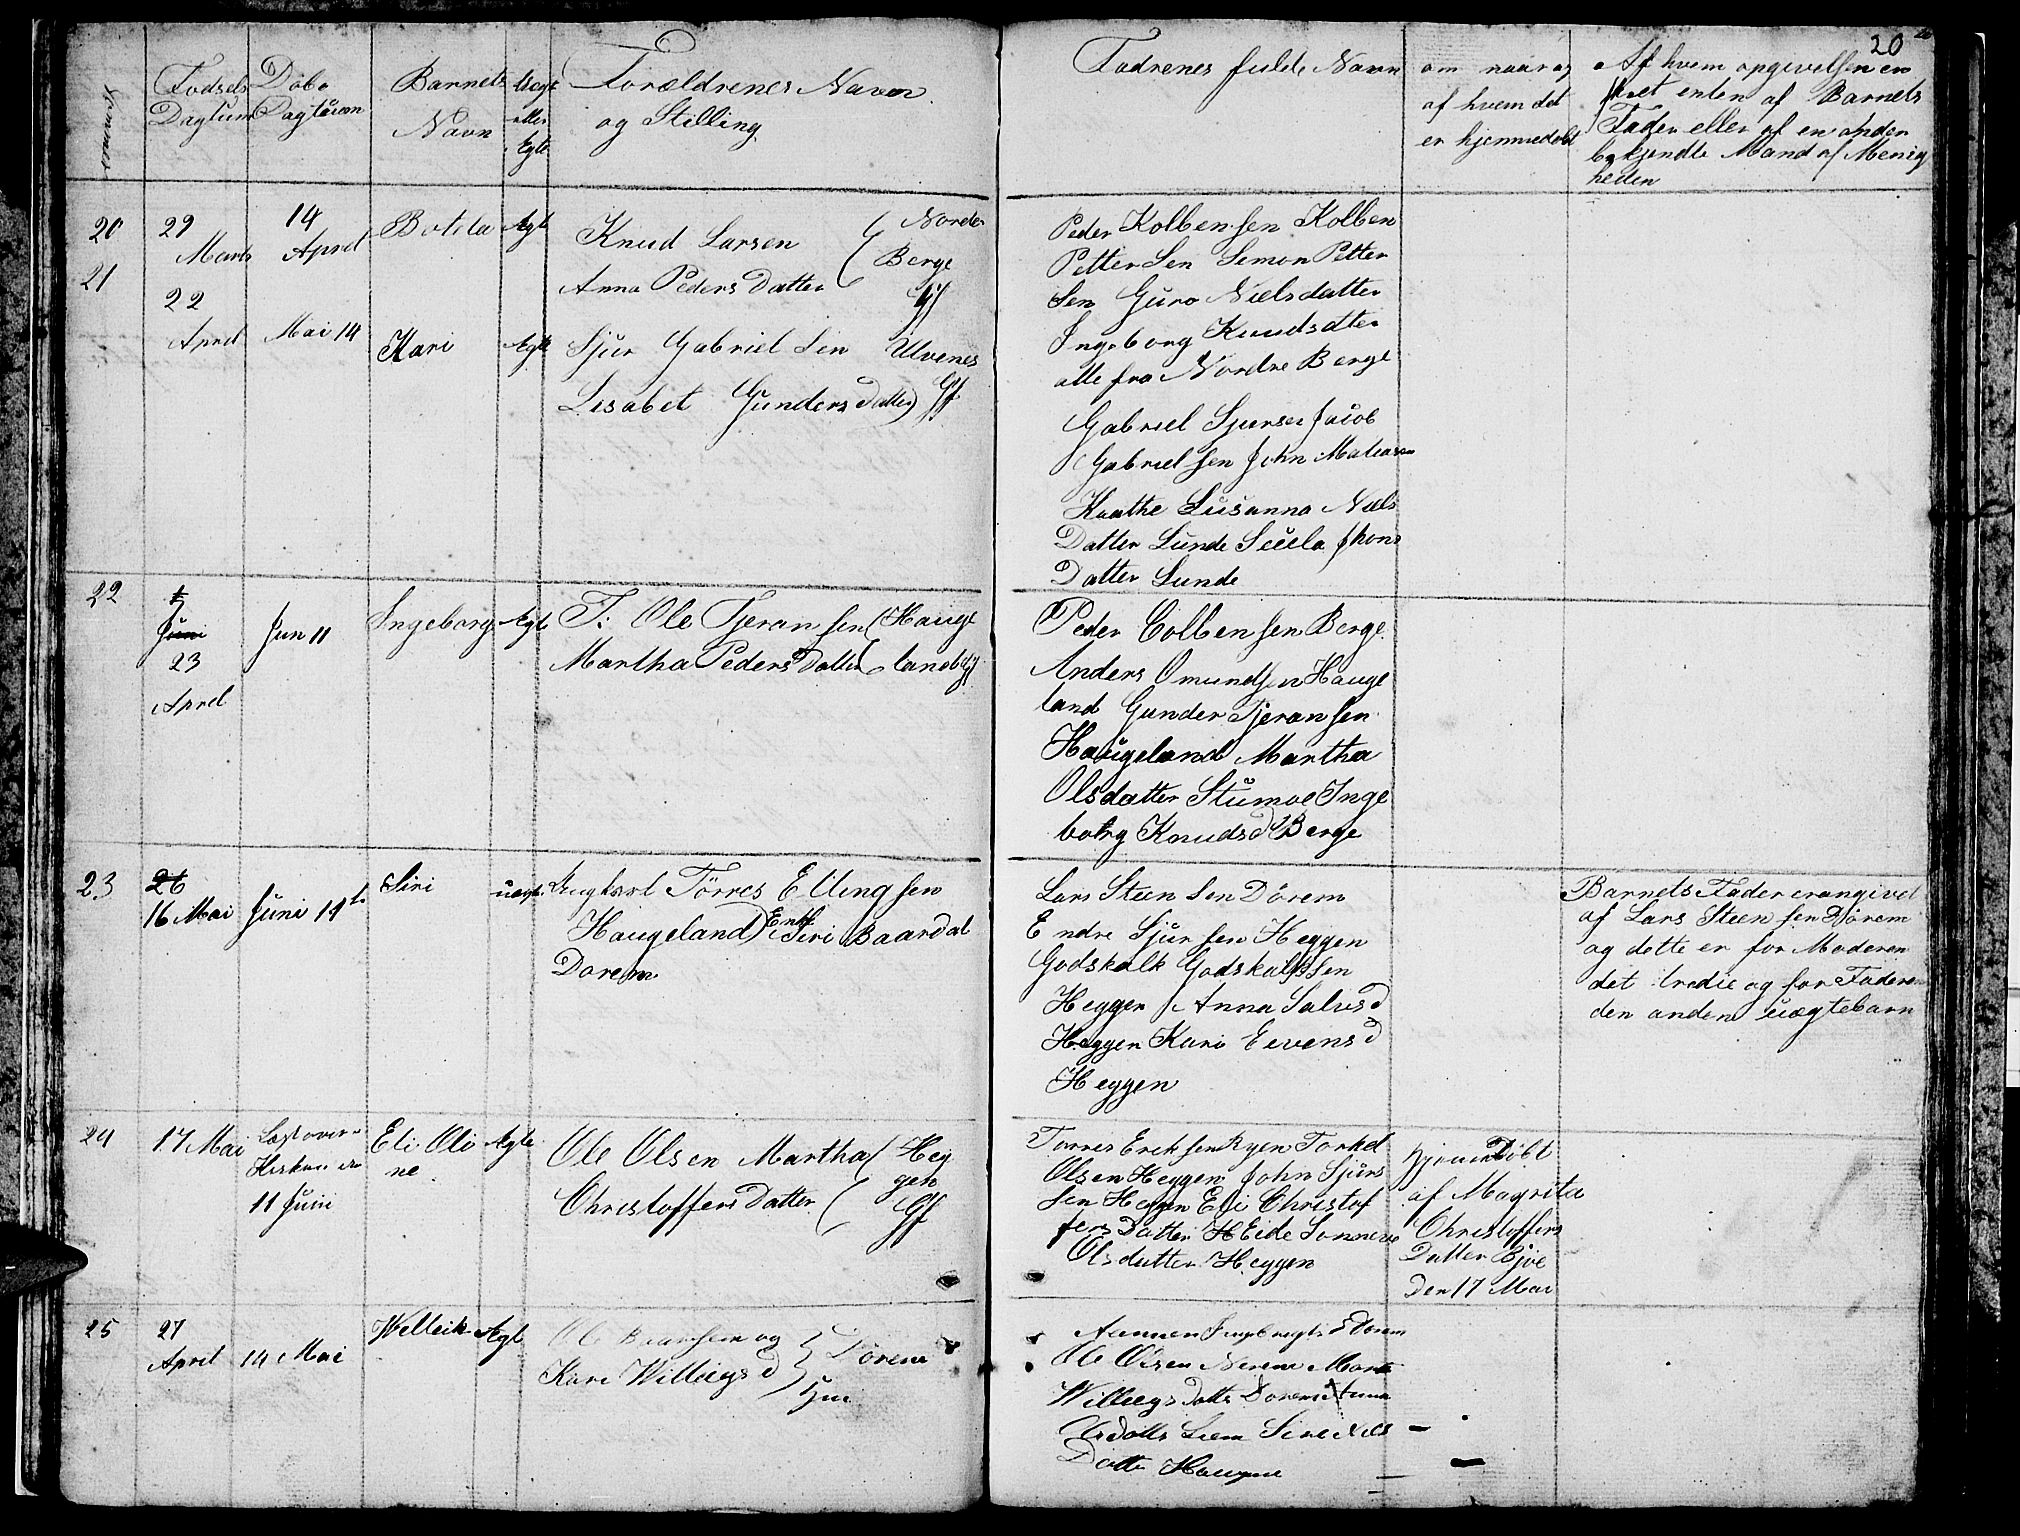 20
Numer
Fødsels
Dagtum
Døbs
Dagtum
Barnets
Navn
Uegt
eller
Egte
Forældrenes Navn
og Stilling
Fadrenes fulde Navn
om naar og
af hvem det
er hjemmedøbt
Af hvem opgivelsen en
skeet enten af Barnets
Fader eller af en anden
bekjendte Mand af Menig
heden
20
29
Marts
14
April
Botila
Ægt
Knud Larsen
Anna Peders Datter
Nordre
Berge
Gf
Peder Kolbensen Kolben
Petter Sen Semon Petter
Sen Guro Nielsdatter
Ingeborg Knudsdtter
alle fra Nordre Berge
21
22
April
Mai 14
Kari
Ægte
Sjur Gabriel Sen Ulvenes
Lisabet Gunders Datter Gf
Gabriel Sjursen Jacob
Gabrielsen John Matiasen
Kaathe Susanna Niels
Datter Lunde Seiela Jhons
Datter Lunde
22
Juni
23
April
Jun 11
Ingeborg
Ægte
T: Ole Tjeransen Hauge
Martha Peders Datter land Gf
Peder Colbensen Berge
Anders Omundsen Hauge
land Gunder Tjeransen
Haugeland Martha
Olsdatter Stumoe Inge
borg Knudsd Berge
23
26
16 Mai
Juni 11te
Siri
uægte
Ungkarl Törres Ellingsen
Haugeland Enke Siri Baardsd
Dorem
Lars Steen Sen Dörem
Endre Sjursen Heggen
Godskalk Godskalksen
Heggen Anna Salvesd
Heggen Kari Eevensd
Heggen
Barnets Fader er angivet
af Lars Steensen Dörem
og dette er for Moderen
det tredie og for Faderen
den anden uægtebarn
24
17 Mai
Læst over
Kirken
11 Juni
Eli Oli
ne
Ægte
Ole Olsen Martha Heg
Christoffers Datter gen
Gf
Torres Eriksen Ryen Torkel
Olsen Heggen John Sjurs
Sen Heggen Eli Christof
fers Datter Eide Sonneve
Olsdatter Heggen
Hjemmedöbt
af Magrita
Christoffers
Datter Bjoe
Den 17 Mai
25
27
April
14 Mai
Welleik
Ægte
Ole Baarsen og
Kari Willeigsd
Dörem
Hm
Aamun Ingebrigts Dorem
Ole Olsen Nerem Marta
Willeigs Datte Dorem Anna
Olsdatte Liem Sire Niels
Datte Haugene